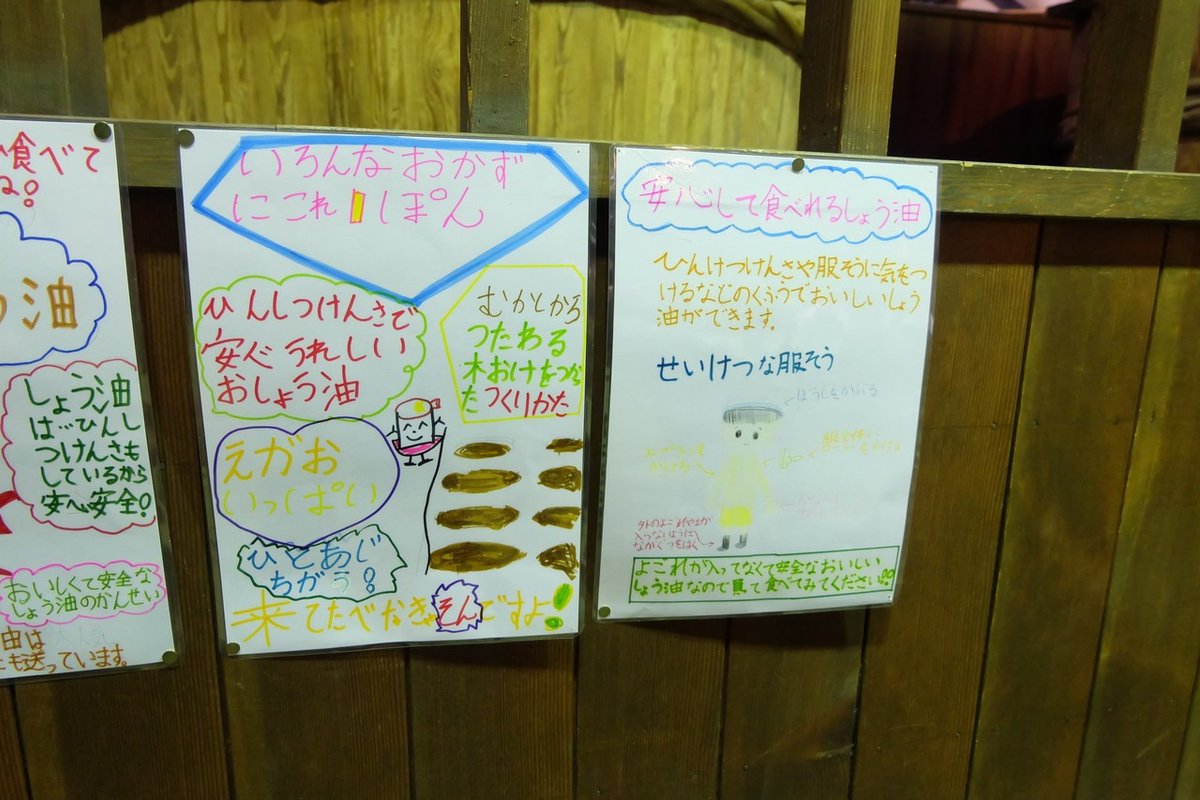 食べて
ね!
う油
しょう油
は…ひんし
つけんさも
しているから
安心安全!
おいしくて安全な
しょう油のかんせい
油は
も送っています。
いろんなおかず
にこれ1しぽん
ひんしつけんさで
安心うれしい
おしょう油
むかしから
つたわる
木おけをつかっ
たつくりかた
えがお
いっしぱい
ひとあじ
ちがう!
来てたべなきゃそんですよ!
安心して食べれるしょう油
ひんけつけんさや服そうに気をつ
けるなどのくふうでおいしいしょう
油ができます。
せいけつな服そう
ぼうしをかぶる
外のよごれや土が
入らないように
ながぐつをはく
よごれが入ってなくて安全なおいしい
しょう油なので買って食べてみてください!!